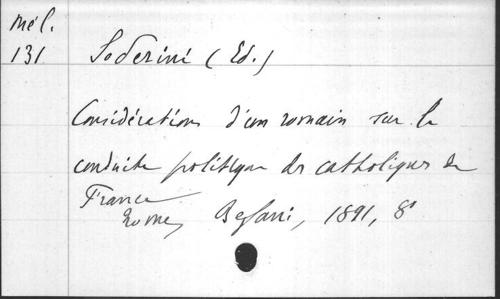 mél.
131
Soderini (Ed.)
Considérations d'un romain sur la
conduite politique des catholiques de
France
Rome, Befani, 1891, 8°